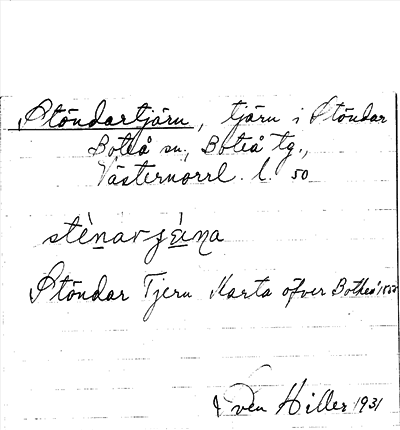 Stöndartjärn, tjärn i Stöndar
Boteå sn, Boteå tg.,
Västernorrl. l. 50
Stöndar Tjern Karta öfver Botheå
Sven Hiller 1931